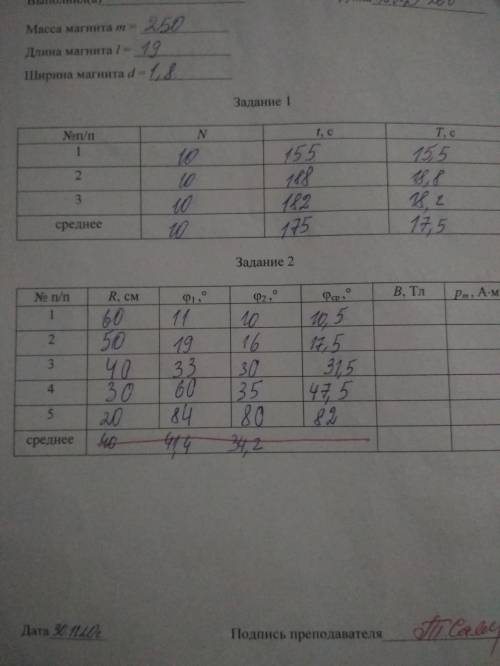 Масса магнита m = 250
Длина магнита l = 19
Ширина магнита d = 1,8
Задание 1
№п/п N t, с T, с
1 10 155 15,5
2 10 188 18,8
3 10 182 18,2
среднее 10 175 17,5
Задание 2
№ п/п R, см φ₁ ,° φ₂ ,° φср ,° B, Тл pm , А·м
1 60 11 10 10,5
2 50 19 16 17,5
3 40 33 30 31,5
4 30 60 35 47,5
5 20 84 80 82
среднее 40 41,4 34,2
Дата 30.11.20г
Подпись преподавателя